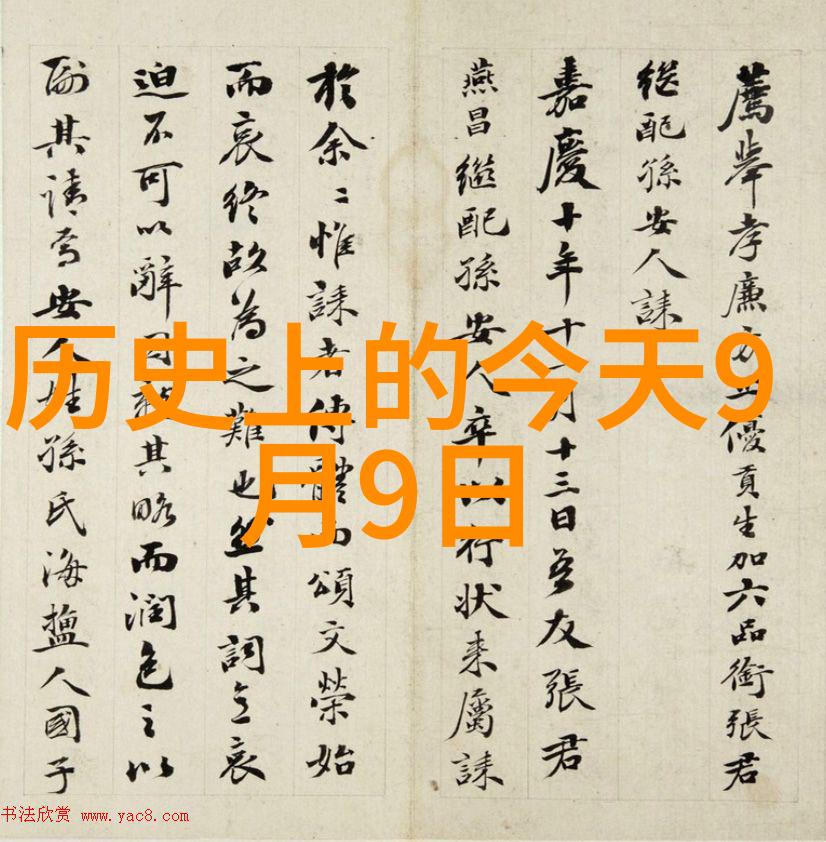 薦舉孝廉方正優貢生加六品銜張君
繼配孫安人誄
嘉慶十年十一月十三日吾友張君
燕昌繼配孫安人卒以行狀来屬誄
於余〻惟誄者傳體而頌文榮始
而哀終故為之難也然其詞哀
迫不可以辭其略而潤色之以
副其請焉安人姓孫氏海鹽人國子
历史上的今天9
月9日
书法欣赏 www.yac8.com